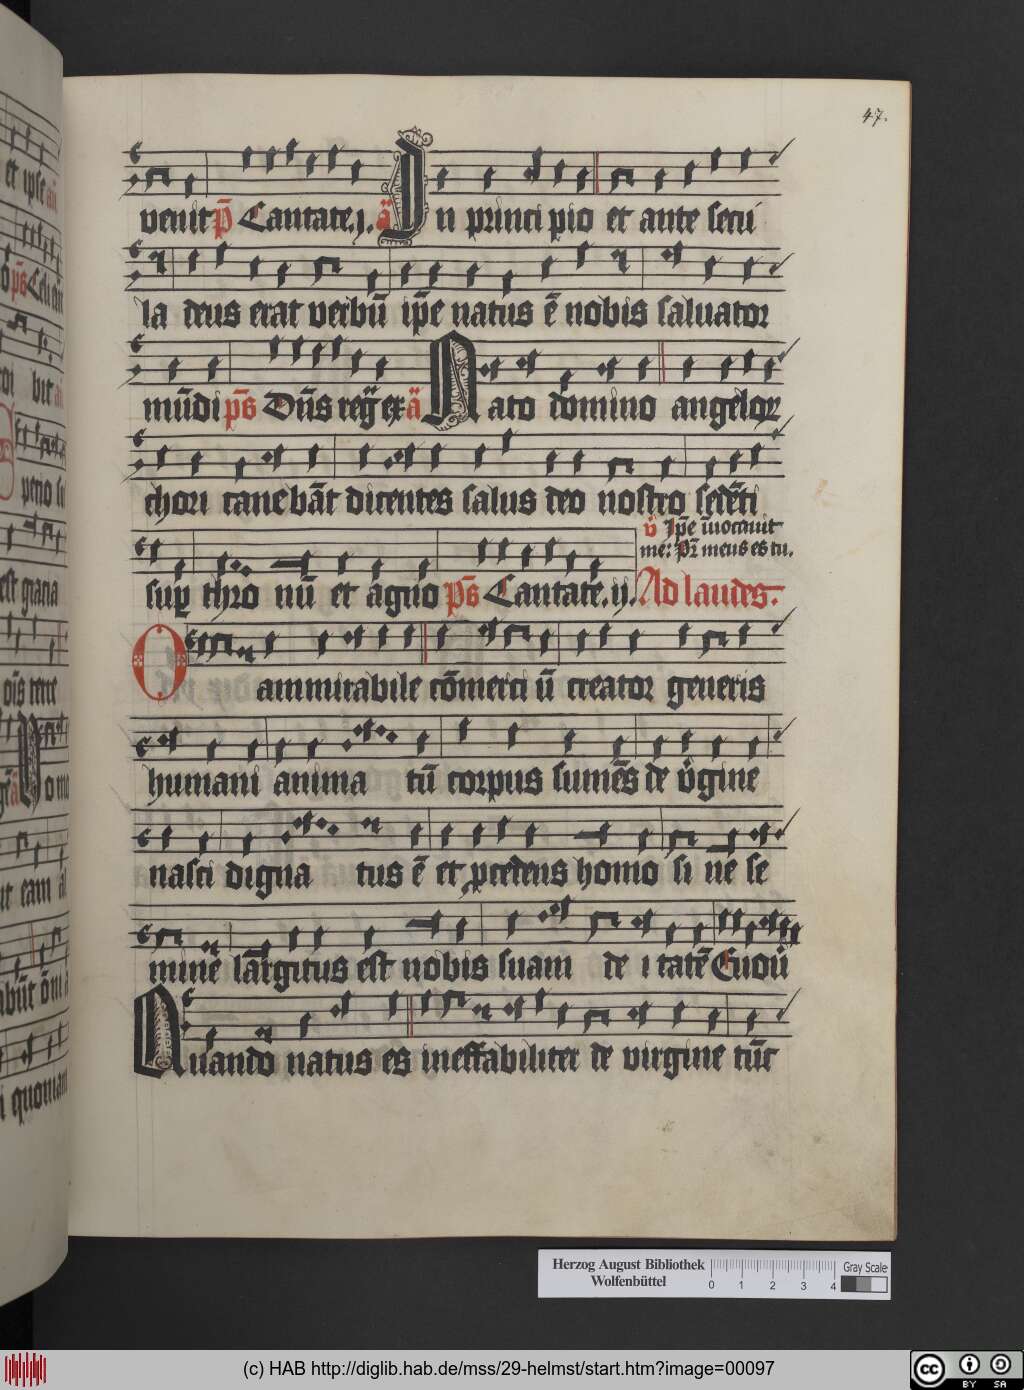 47.
venit p̄ Cantate.j. a̅ In principio et ante secu
la deus erat verbū ip̄e natus ē nobis saluator
mūdi ps̄ Dn̄s reg̅ ex a̅ Nato domino angeloꝝ
chori canebāt dicentes salus deo nostro sedēti
v̄ Ip̄e īuocauit
me: Pr̄ meus es tu.
suꝑ thronū et agno ps̄ Cantate.ij. Ad laudes.
O ammirabile cōmerciū creator generis
humani animatū corpus sumēs de v̄gine
nasci dignatus ē et ꝓcedens homo sine se
mine largitus est nobis suam deitatē Euou
Quando natus es ineffabiliter de virgine tūc
et ipse
est gracia
quoniam
Herzog August Bibliothek
Wolfenbüttel
0 1 2 3 4
Gray Scale
(c) HAB http://diglib.hab.de/mss/29-helmst/start.htm?image=00097
cc BY SA